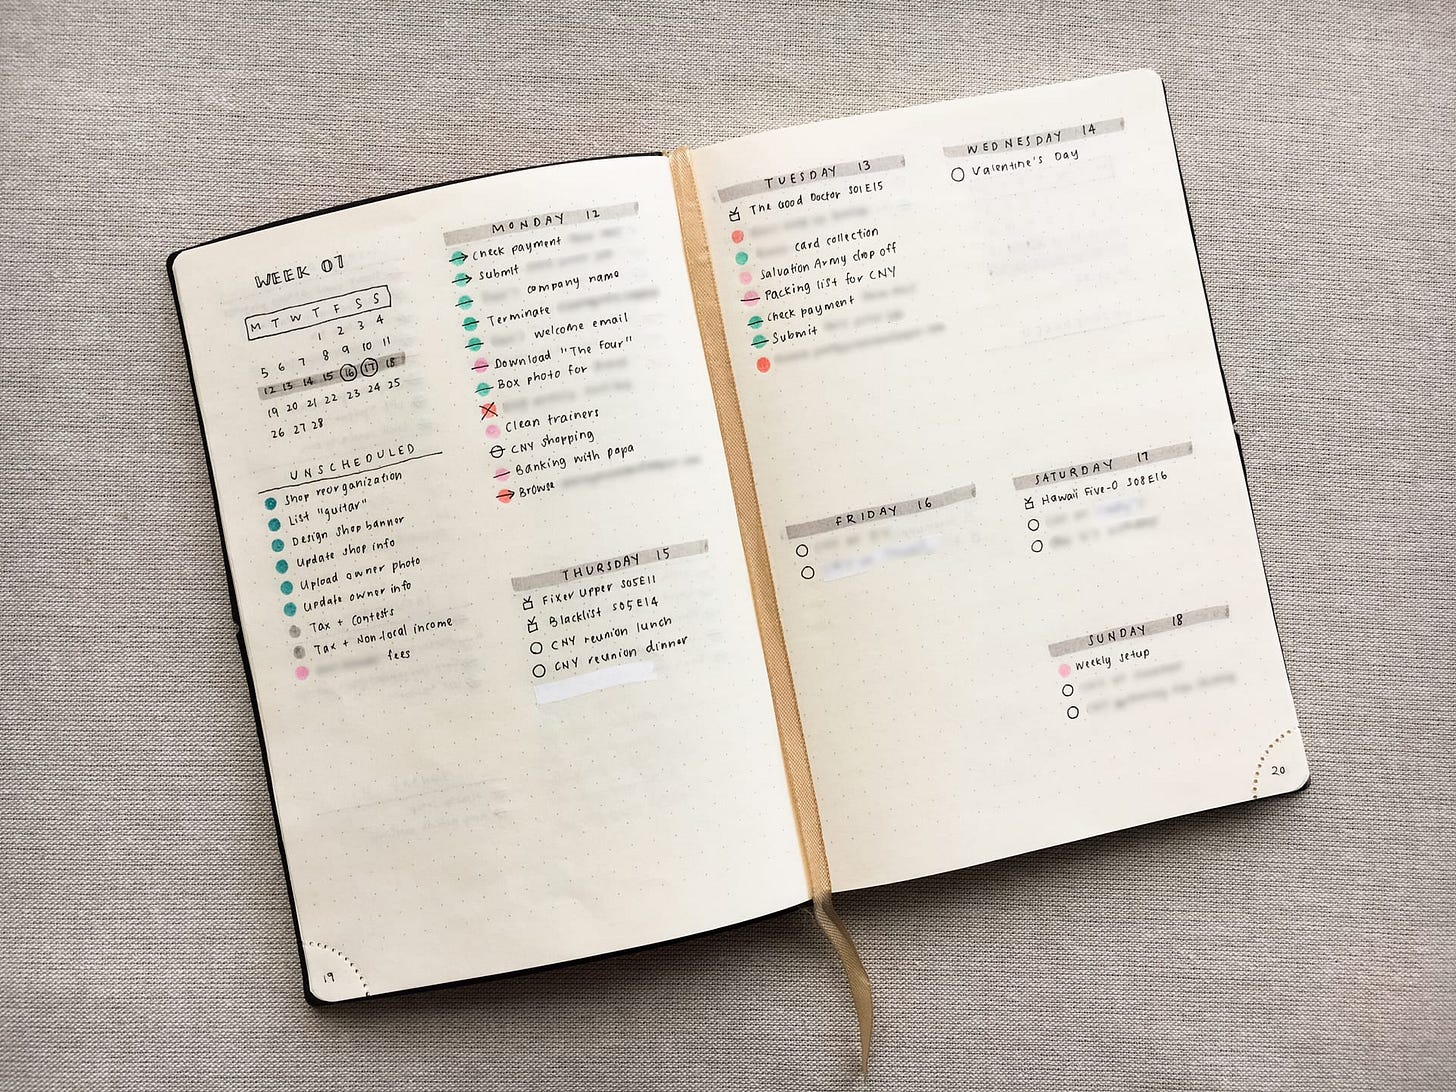 WEEK 07
M T W T F S S
1 2 3 4
5 6 7 8 9 10 11
12 13 14 15 16 17 18
19 20 21 22 23 24 25
26 27 28
UNSCHEDULED
Shop reorganization
List "guitar"
Design shop banner
Update shop info
Upload owner photo
Update owner info
Tax + Contests
Tax + Non-local income
fees
19
MONDAY 12
Check payment
Submit
company name
Terminate
welcome email
Download "The Four"
Box photo for
Clean trainers
CNY shopping
Banking with papa
Browse
THURSDAY 15
Fixer Upper S05E11
Blacklist S05E14
CNY reunion lunch
CNY reunion dinner
TUESDAY 13
The Good Doctor S01E15
card collection
Salvation Army drop off
Packing list for CNY
Check payment
Submit
WEDNESDAY 14
Valentine's Day
FRIDAY 16
SATURDAY 17
Hawaii Five-0 S08E16
SUNDAY 18
Weekly setup
20